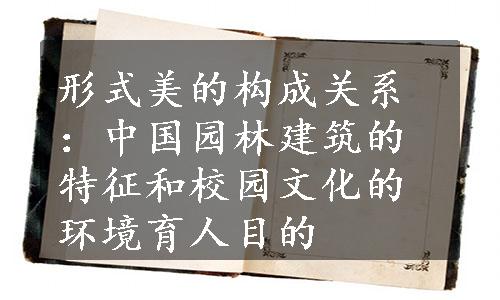 形式美的构成关系
：中国园林建筑的
特征和校园文化的
环境育人目的